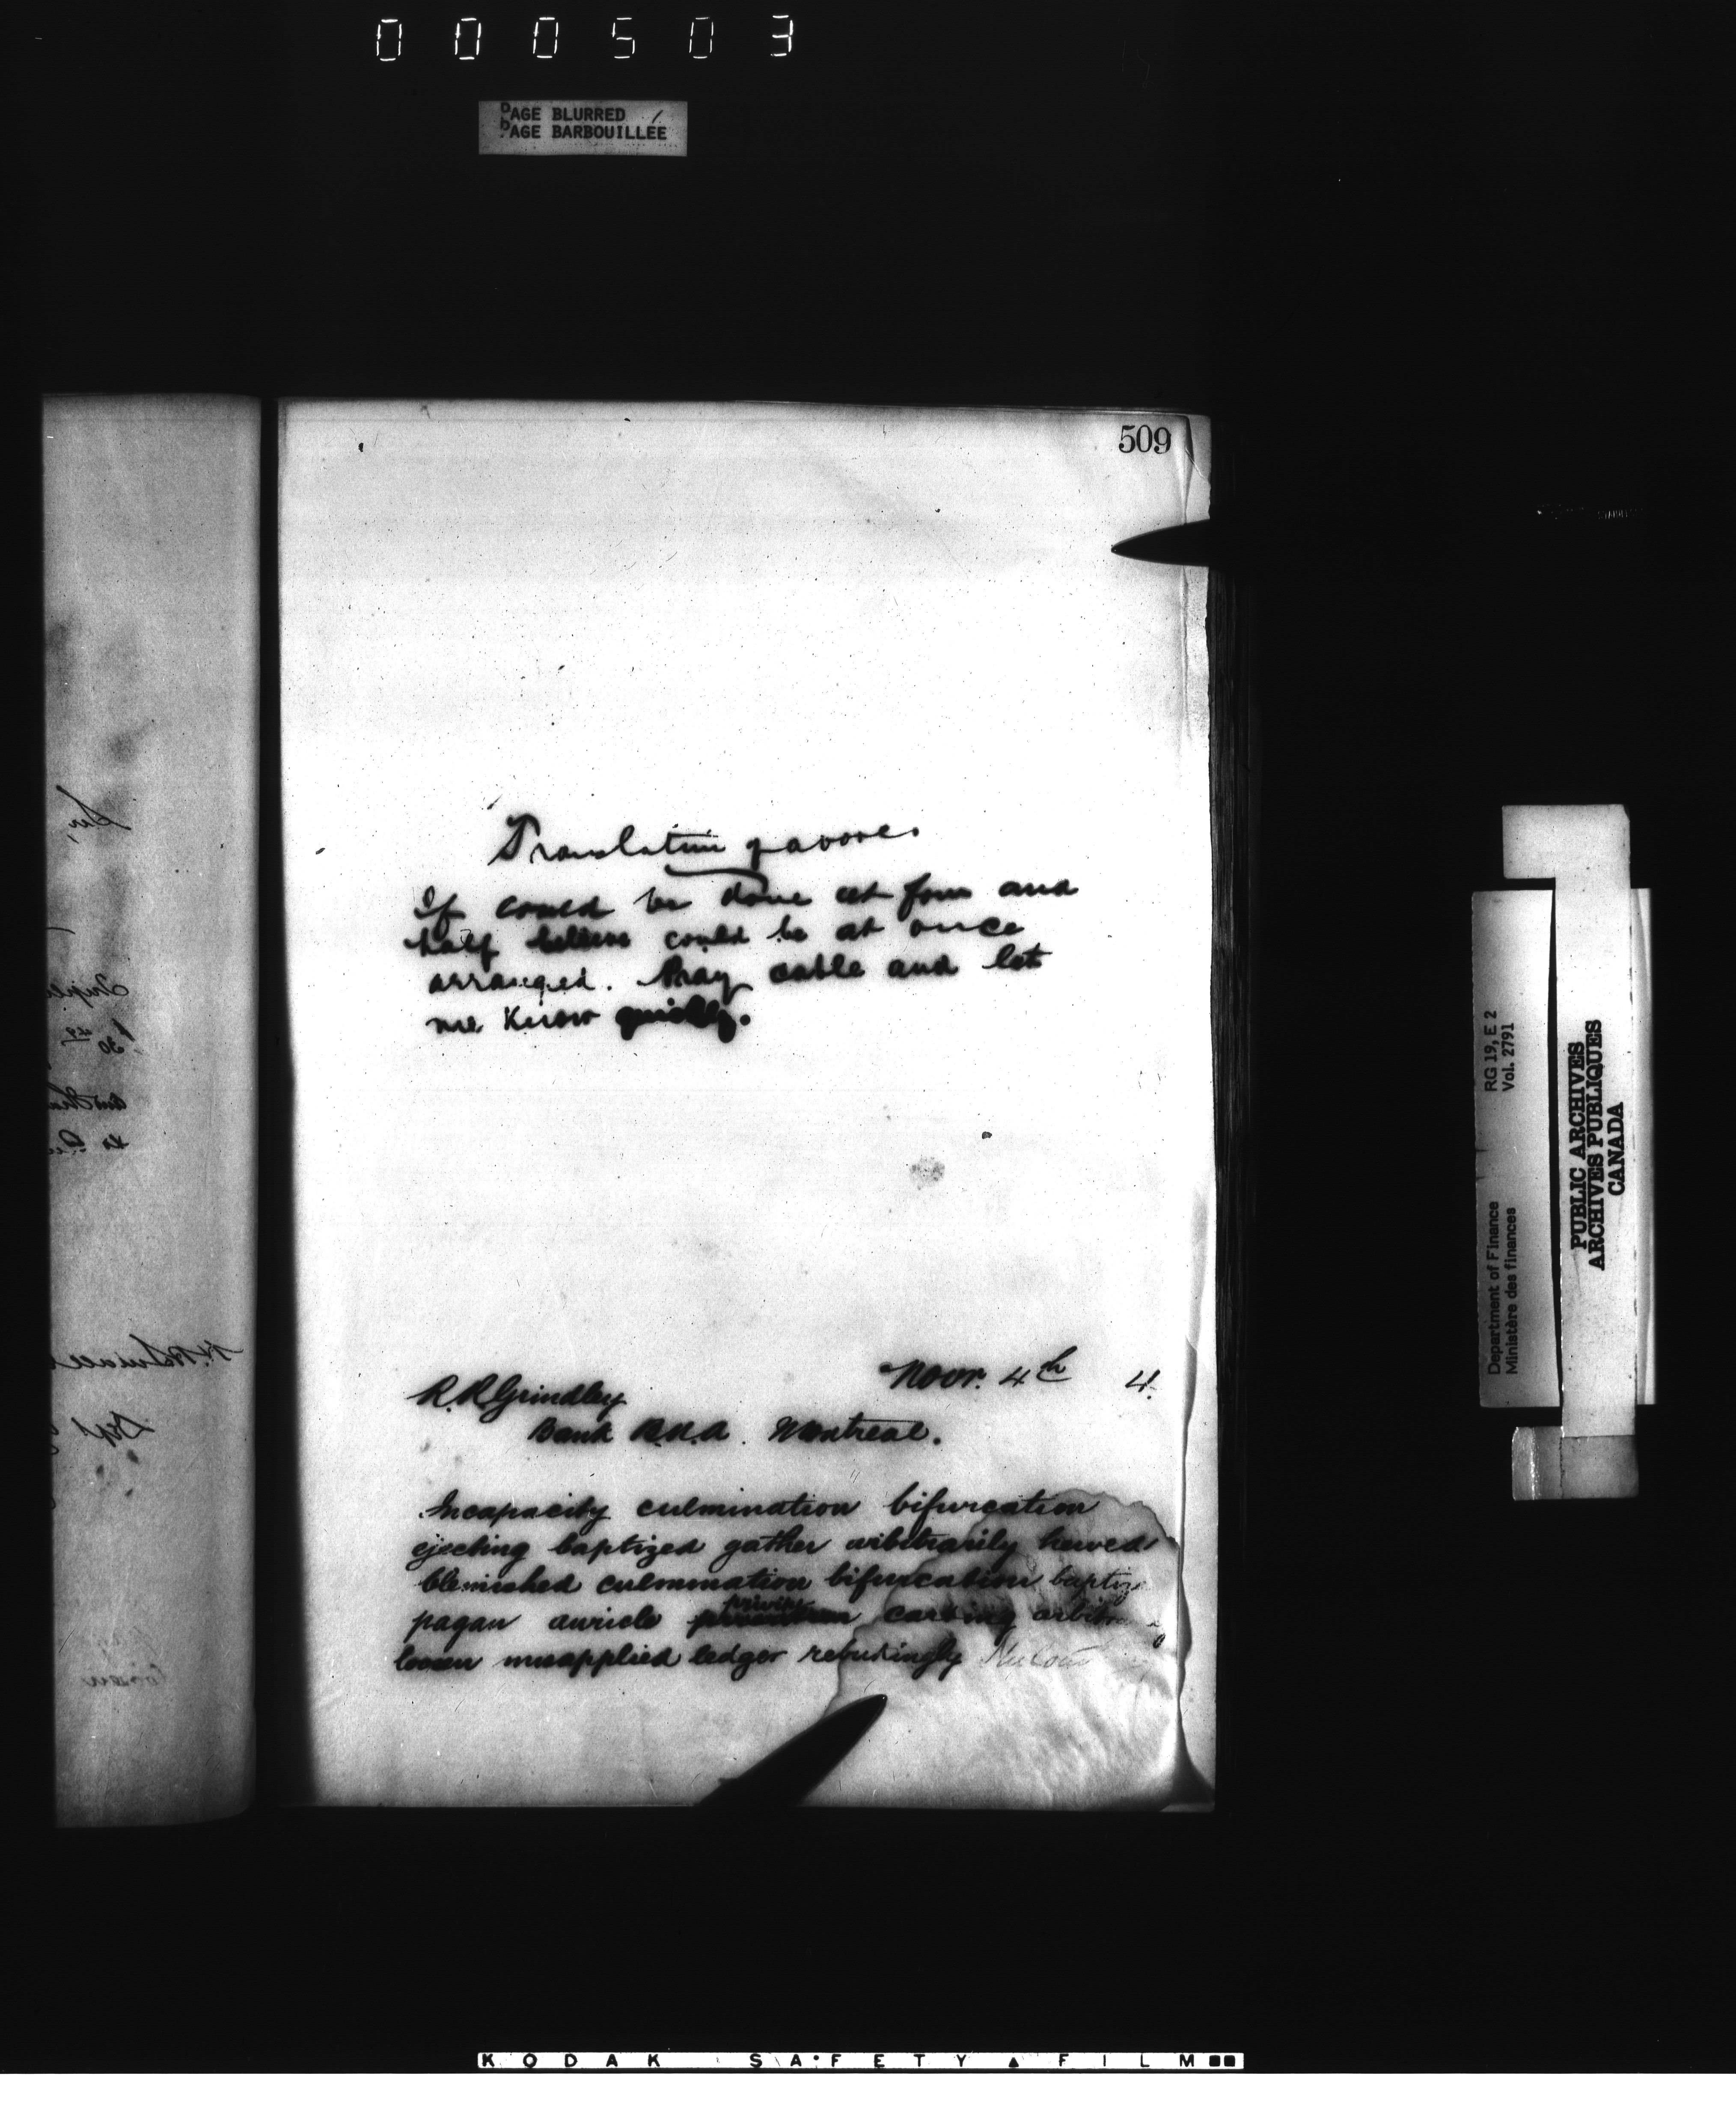 000503
PAGE BLURRED
PAGE BARBOUILLÉE
509
Translation of above.
If could be done at four and
half believe could be at once
arranged. Pray cable and let
me know quickly.
R. R Grindley
Novr. 4th 4.
Bank B.N.A. Montreal.
Incapacity culmination bifurcation
ejecting baptized gather arbitrarily hewed
blemished culmination bifurcation
pagan auricle carving
loosen misapplied ledger
Sir,
Department of Finance RG 19, E 2
Ministère des finances Vol. 2791
PUBLIC ARCHIVES
ARCHIVES PUBLIQUES
CANADA
KODAK SAFETY FILM